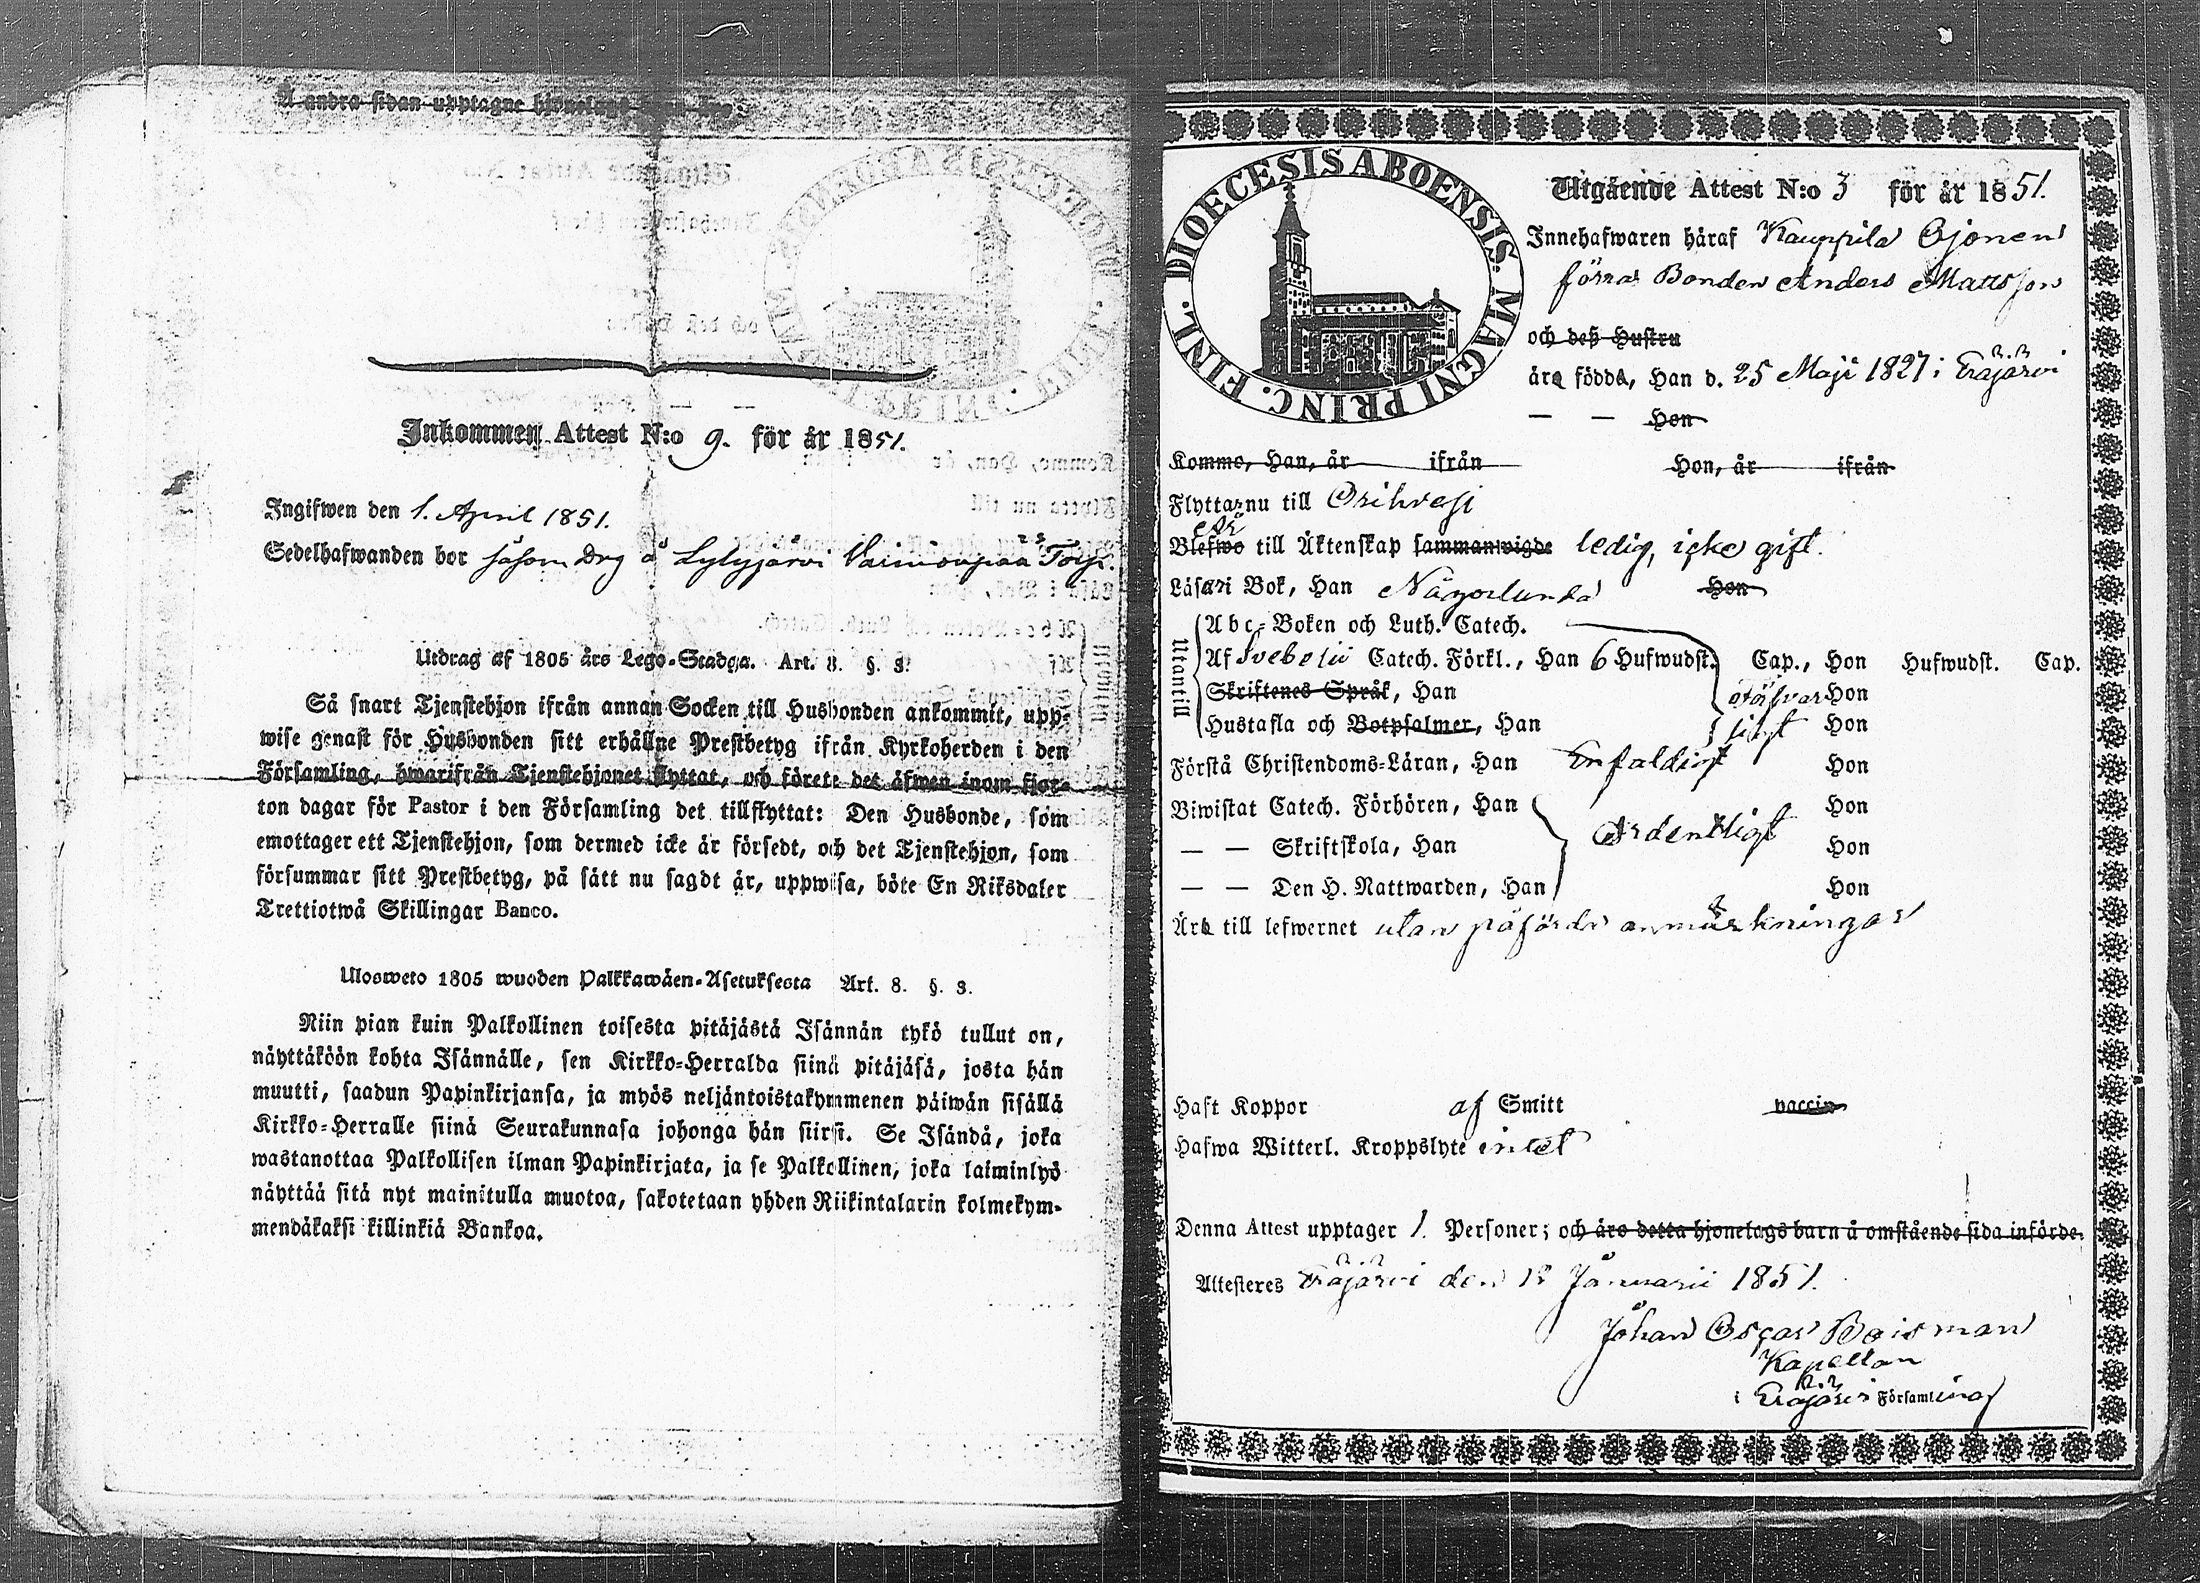 Å andra sidan upptagne hjonelags
Inkommen Attest N:o 9. för år 1851.
Ingifwen den 1. April 1851.
Sedelhafwanden bor såsom Drg å Lylyjärvi Torp.
Utdrag af 1805 års Lego-Stadga. Art. 8. §. 3.
Så snart Tjenstehjon ifrån annan Socken till Husbonden ankommit, upp-
wise genast för Husbonden sitt erhållne Prestbetyg ifrån Kyrkoherden i den
Församling, hwarifrån Tjenstehjonet flyttat, och förete det äfwen inom fjor-
ton dagar för Pastor i den Församling det tillflyttat: Den Husbonde, som
emottager ett Tjenstehjon, som dermed icke är försedt, och det Tjenstehjon, som
försummar sitt Prestbetyg, på sätt nu sagdt är, uppwisa, böte En Riksdaler
Trettiotwå Skillingar Banco.
Ulosweto 1805 wuoden Palkkawäen-Asetuksesta Art. 8. §. 3.
Niin pian kuin Palkollinen toisesta pitäjästä Isännän tykö tullut on,
näyttäköön kohta Isännälle, sen Kirkko-Herralda siinä pitäjäsä, josta hän
muutti, saadun Papinkirjansa, ja myös neljäntoistakymmenen päiwän sisällä
Kirkko-Herralle siinä Seurakunnasa johonga hän siirsi. Se Isändä, joka
wastanottaa Palkollisen ilman Papinkirjata, ja se Palkollinen, joka laiminlyö
näyttää sitä nyt mainitulla muotoa, sakotetaan yhden Riikintalarin kolmekym-
mendäkaksi killinkiä Bankoa.
DIOECESIS ABOENSIS. MAGNI PRINC. FINL.
Utgående Attest N:o 3 för år 1851.
Innehafwaren häraf Kauppila Ojonen
förra Bonden Anders Mattsson
och deß Hustru
äro födda, Han d. 25 Maji 1827 i Eräjärvi
— — Hon
Komme, Han, år ifrån Hon, år ifrån
Flyttar nu till Orihvesi
Är
Blefwo till Äktenskap sammanwigde ledig, icke gift.
Läser i Bok, Han Någorlunda Hon
Utantill
Abc-Boken och Luth. Catech.
Af Svebelii Catech. Förkl., Han 6 Hufwudst. Cap., Hon Hufwudst. Cap.
Skriftenes Språk, Han Hon
Hustafla och Botpsalmer, Han Hon
Förstå Christendoms-Läran, Han Enfaldigt Hon
Biwistat Catech. Förhören, Han Hon
— — Skriftskola, Han Ordentligt Hon
— — Den H. Nattwarden, Han Hon
Är till lefwernet utan påförda anmärkningar
Haft Koppor af Smitt vaccin
Hafwa Witterl. Kroppslyte intet
Denna Attest upptager 1. Personer; och äro detta hjonelags barn å omstående sida införde.
Attesteres Eräjärvi den Januarii 1851.
Johan Oscar Boisman
Kapellan
i Eräjärvi Församling